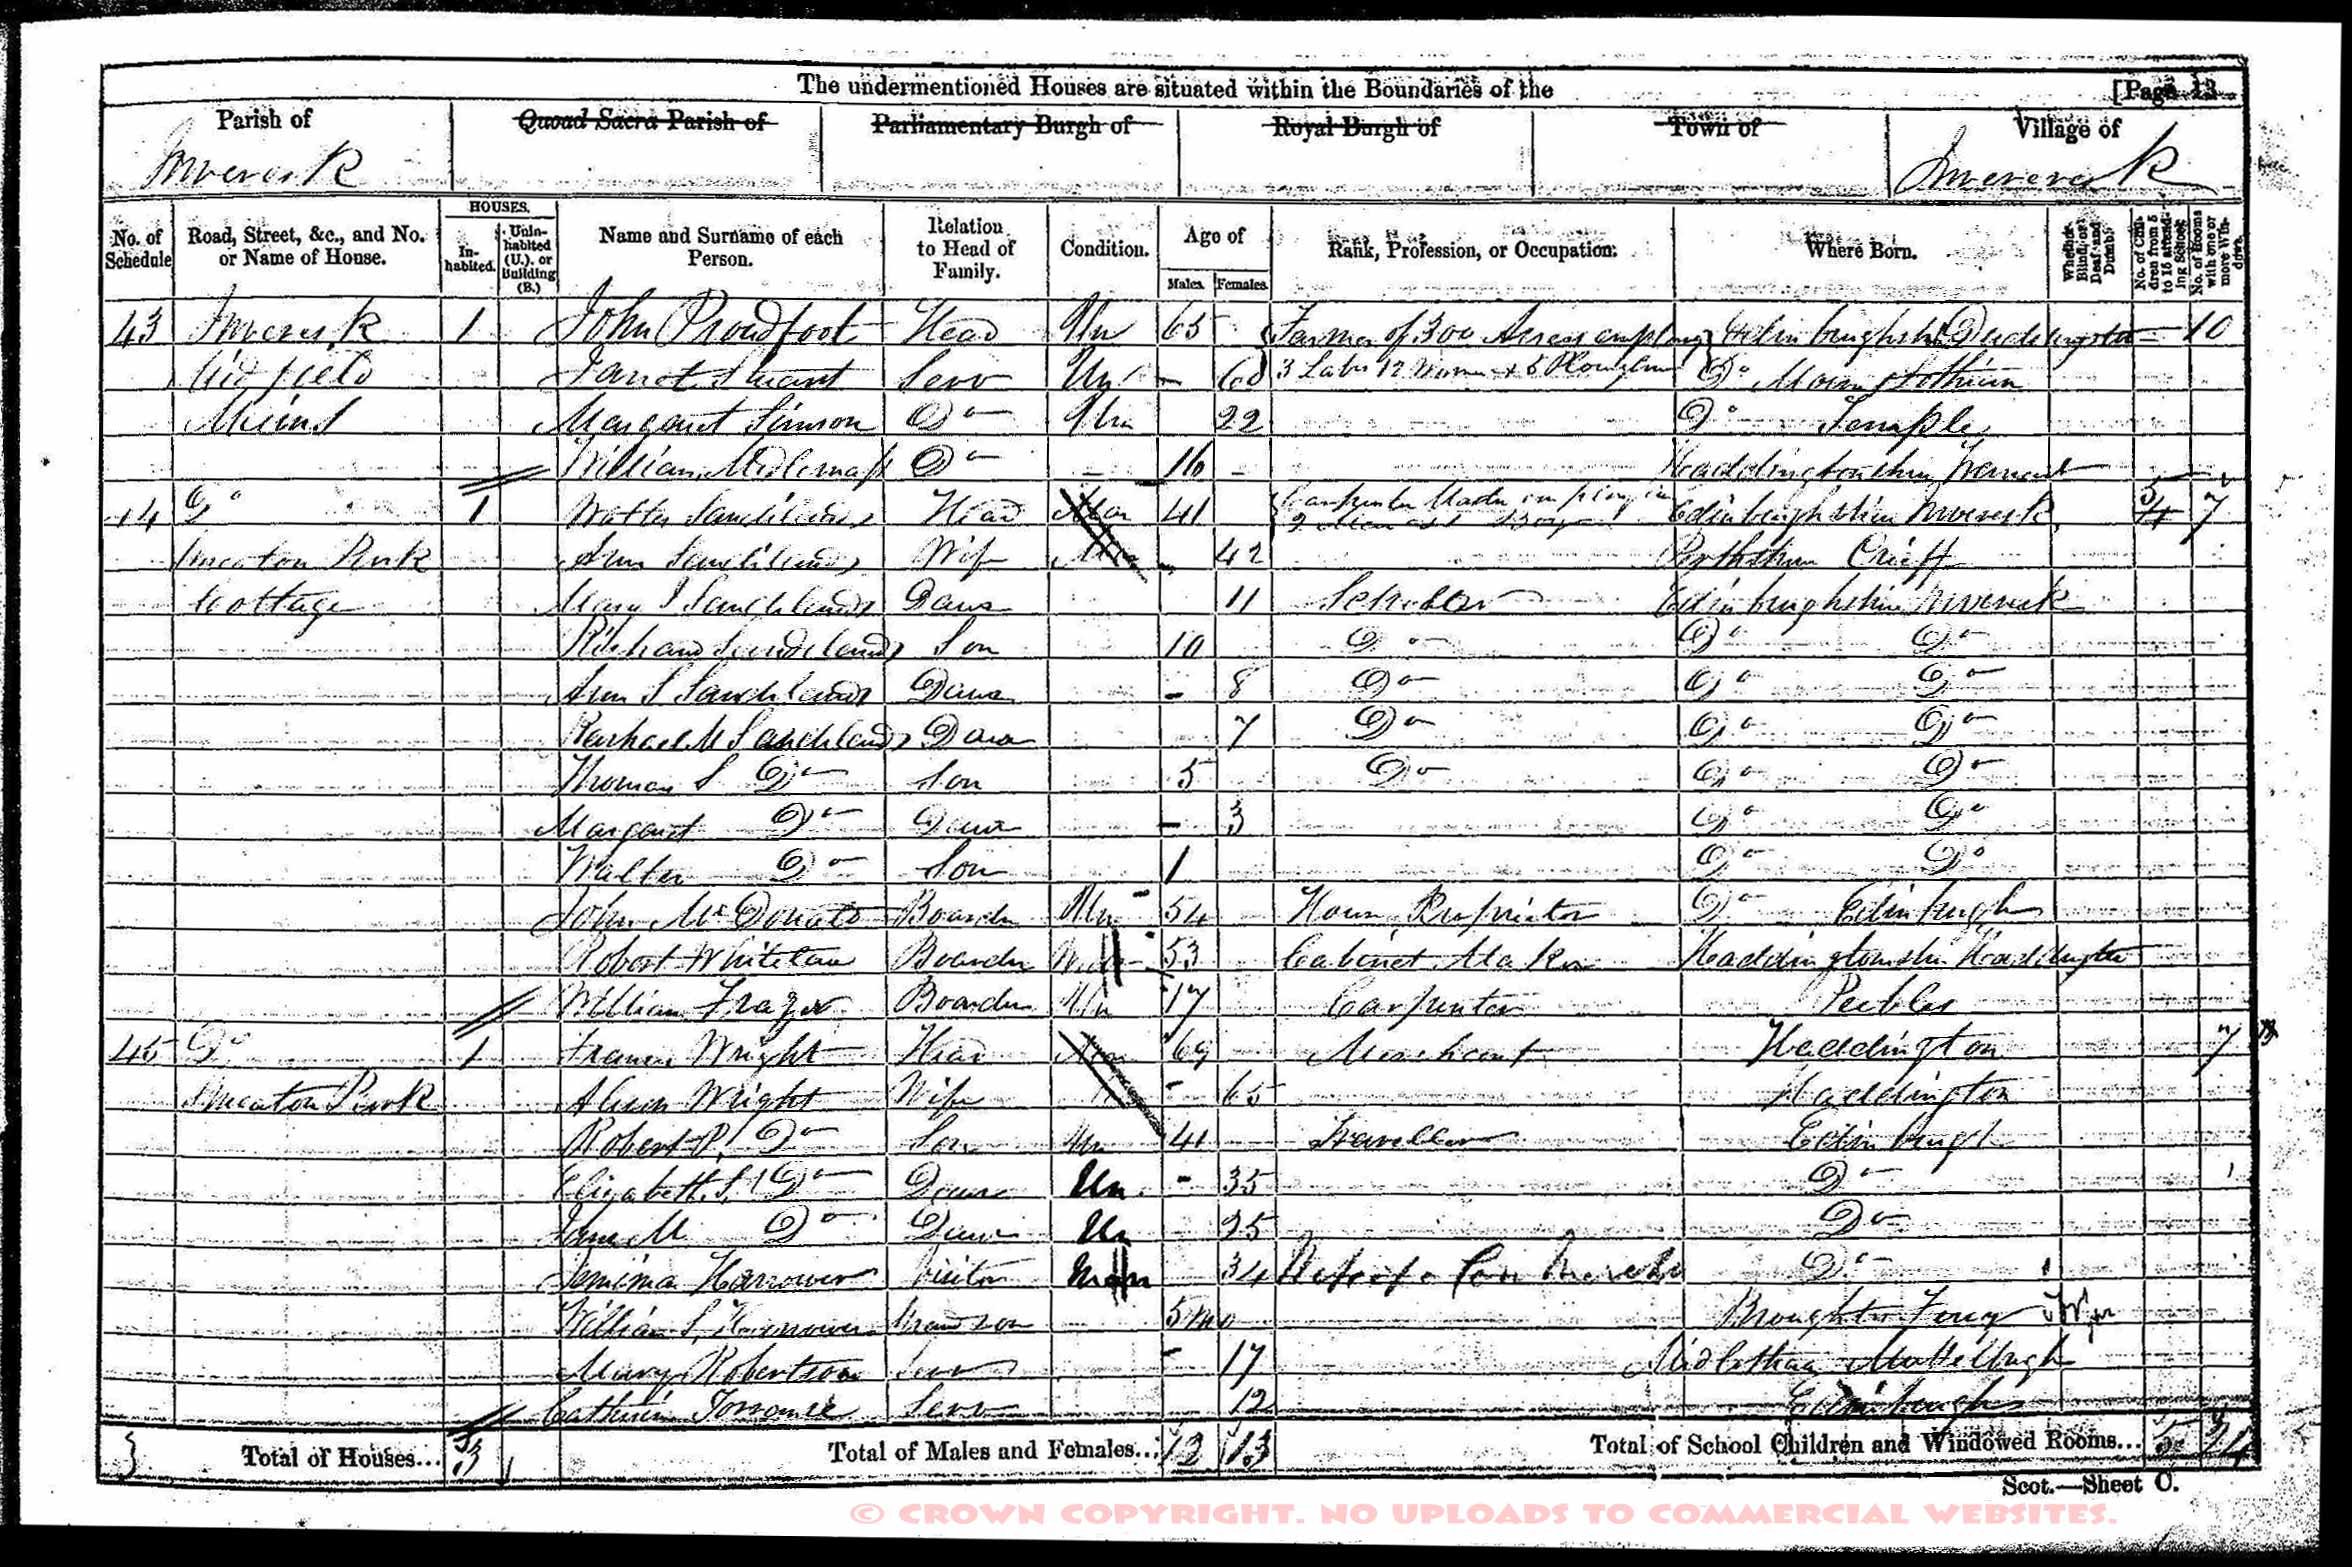 The undermentioned Houses are situated within the Boundaries of the [Page 13
Parish of Quoad Sacra Parish of Parliamentary Burgh of Royal Burgh of Town of Village of
Inveresk Inveresk
No. of Schedule Road, Street, &c., and No. or Name of House. HOUSES. Inhabited. Uninhabited (U.), or Building (B.) Name and Surname of each Person. Relation to Head of Family. Condition. Age of Males. Females. Rank, Profession, or Occupation. Where Born. Whether Blind, or Deaf-and Dumb. No. of Children from 5 to 15 attending School No. of Rooms with one or more Windows.
43 Inveresk 1 John Proudfoot Head Un 65 Farmer of 300 Acres employing Edinburghshire Duddingston 10
Janet Stuart Serv Un 60 3 Labr 12 Women & 5 Ploughmen Do
Mains Margaret Simson Do Un 22 Do Temple
William Do 16 Haddingtonshire
44 Do 1 Walter Head Mar 41 Carpenter Master employing Edinburghshire Inveresk 5 4 7
Smeaton Park Ann Wife Mar 42 Perthshire Crieff
Cottage Mary Daur 11 Scholar Edinburghshire Inveresk
Richard Son 10 Do Do Do
Ann S Daur 8 Do Do Do
Rachael M Daur 7 Do Do Do
Thomas S Do Son 5 Do Do Do
Margaret Do Daur 3 Do Do
Walter Do Son 1 Do Do
John McDonald Boarder Un 54 House Proprietor Do Edinburgh
Robert Whitelaw Boarder 53 Cabinet Maker Haddingtonshire Haddington
William Frazer Boarder Un 17 Carpenter Peebles
45 Do 1 Francis Wright Head Mar 69 Merchant Haddington 7
Smeaton Park Alison Wright Wife 65 Haddington
Robert P. Do Son Un 41 Traveller Edinburgh
Elizabeth S. Do Daur Un 35 Do
Jane M Do Daur Un 25 Do
Jemima Harrower Visitor Mar 34 Wife of a Corn Merchant Do
William S. Harrower Grandson 5 mo Broughty Ferry
Mary Robertson Serv 17 Midlothian Musselburgh
Catherine Torrance Serv 12 Edinburgh
3 Total of Houses... 3 Total of Males and Females... 12 13 Total of School Children and Windowed Rooms... 5 24
Scot.—Sheet C.
© CROWN COPYRIGHT. NO UPLOADS TO COMMERCIAL WEBSITES.